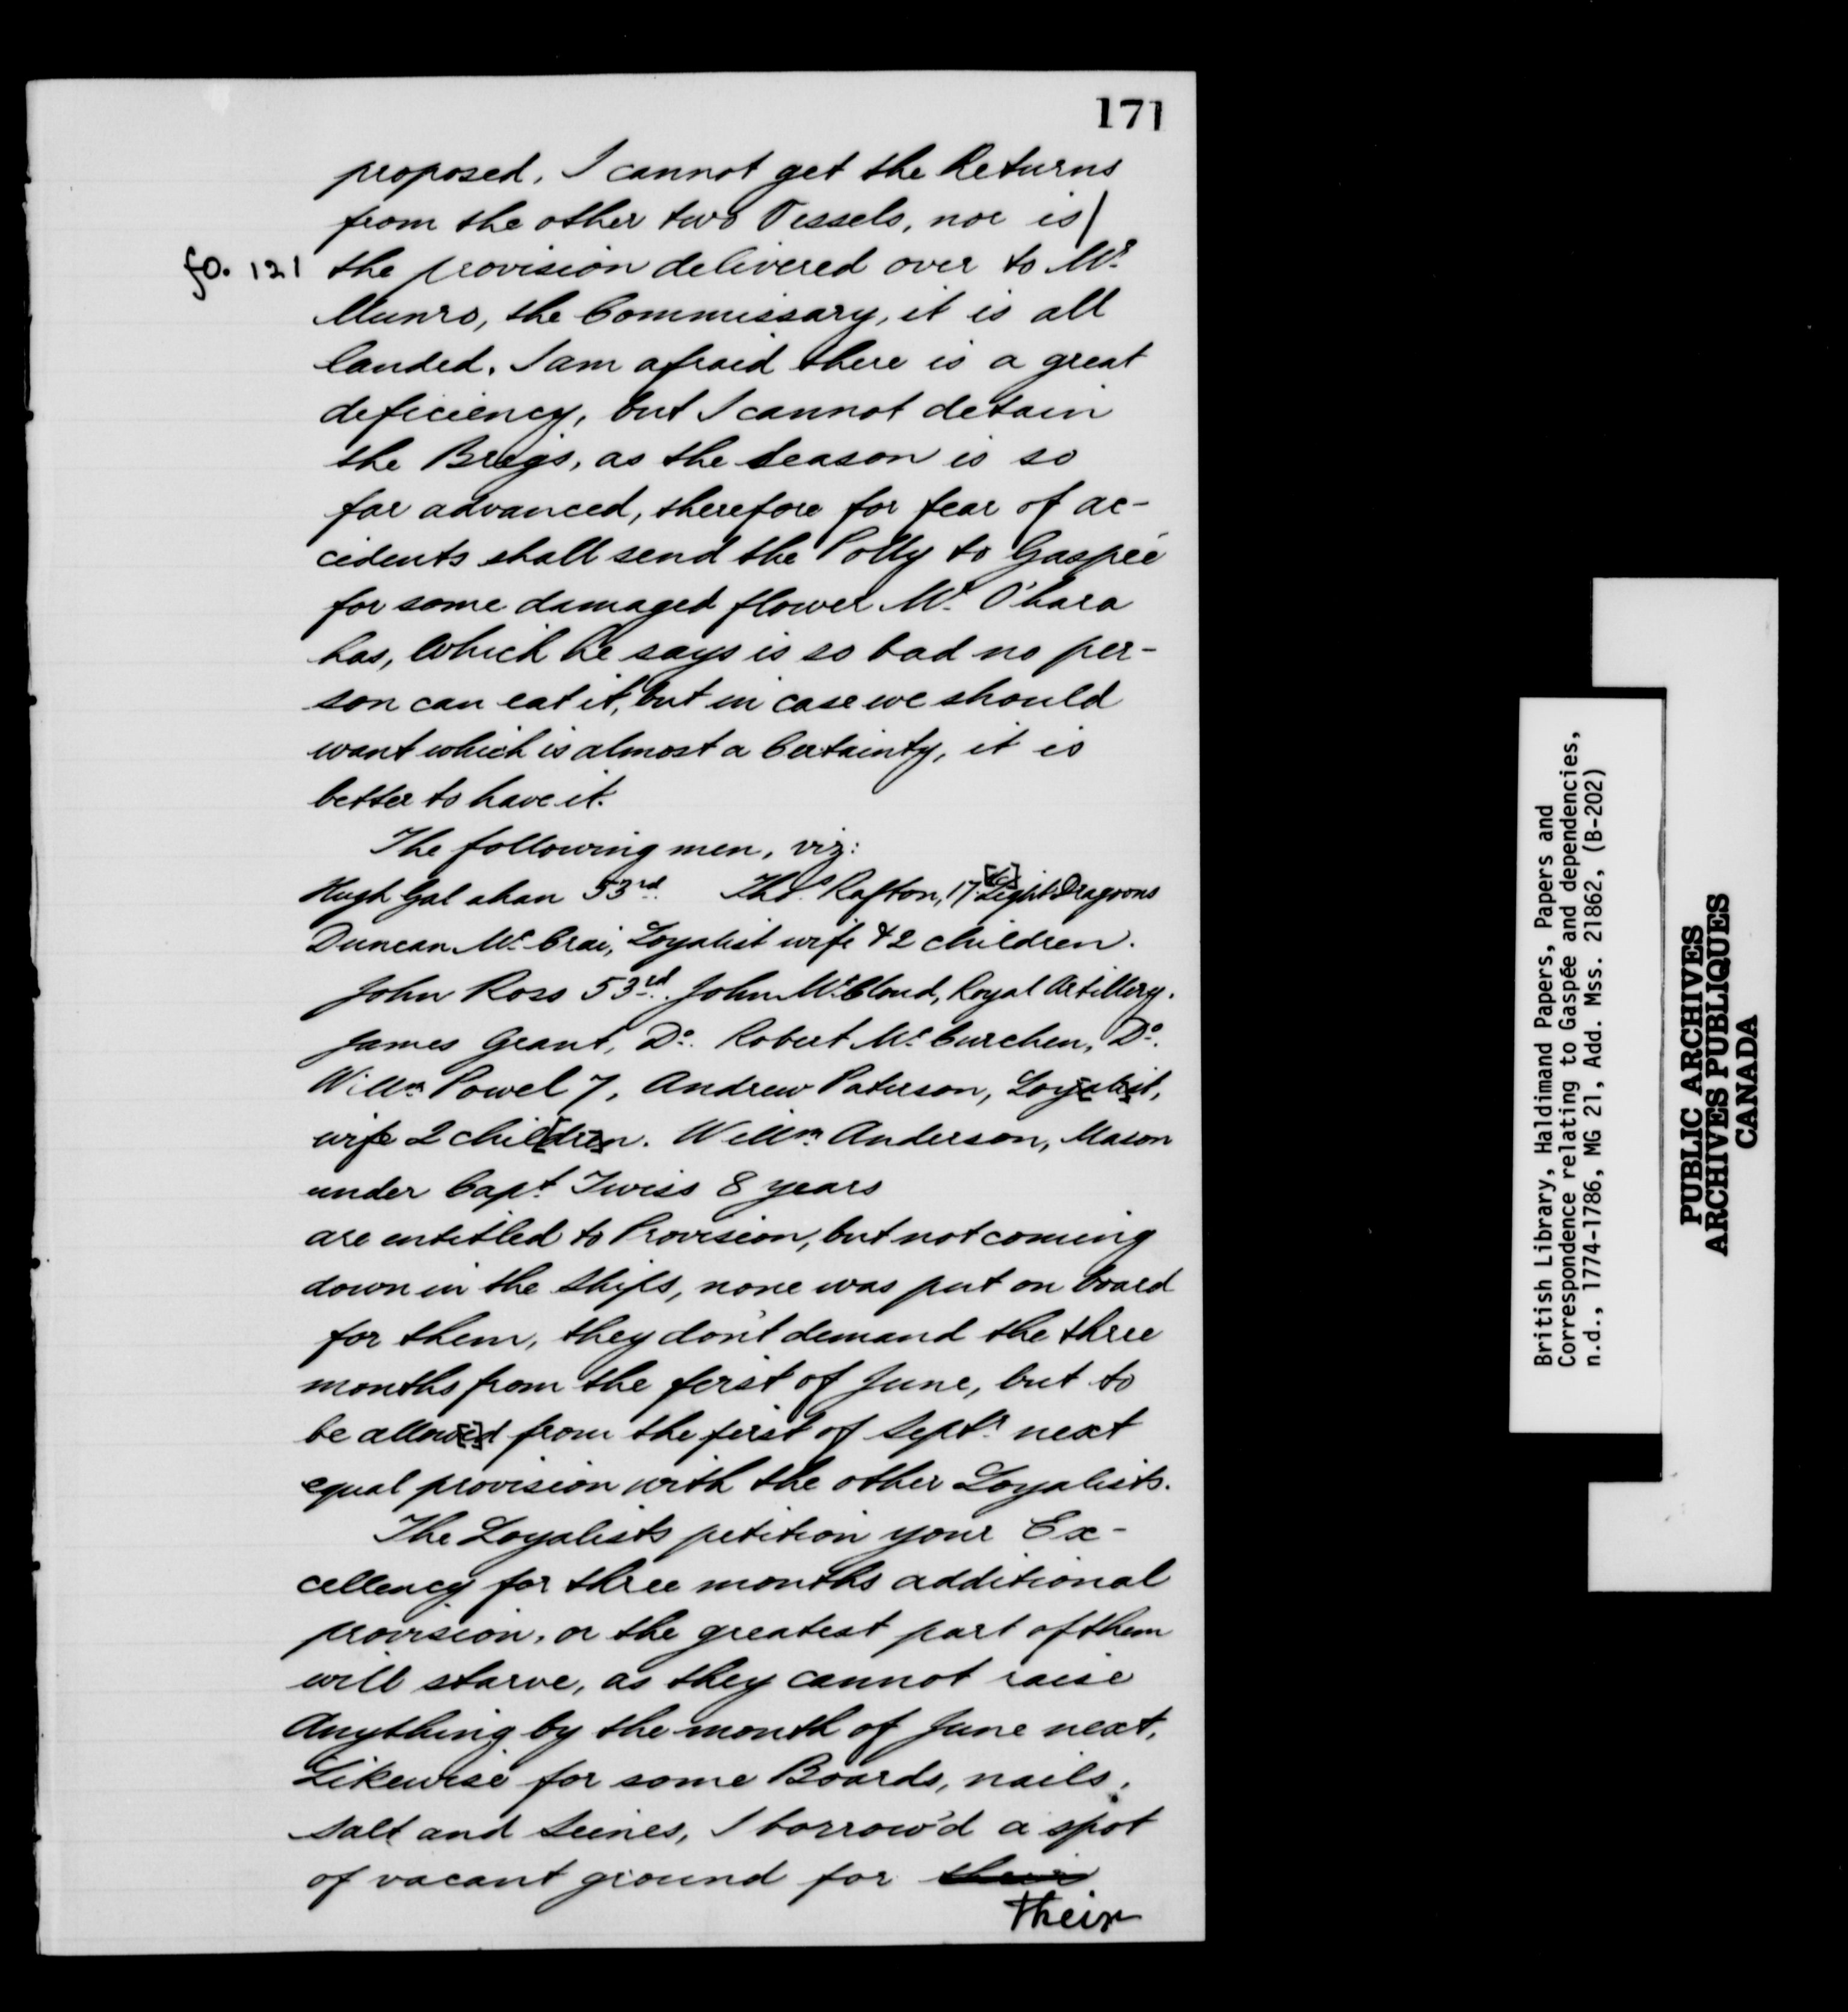 171
proposed, I cannot get the Returns
from the other two Vessels, nor is/
fo. 121 the provision delivered over to Mr.
Munro, the Commissary, it is all
landed. I am afraid there is a great
deficiency, but I cannot detain
the Brigs, as the Season is so
far advanced, therefore for fear of ac-
cidents shall send the Polly to Gaspée
for some damaged flower Mr. O'hara
has, which he says is so bad no per-
son can eat it, but in case we should
want which is almost a Certainty, it is
better to have it.
The following men, viz:
Hugh Gal ahan 53rd. Thos. Rafton, 17 Light Dragoons
Duncan Mc. Crai, Loyalist wife & 2 children.
John Ross 53rd. John McCloud, Royal Artillery.
James Grant, Do. Robert Mc. Curchen, Do.
Willm. Powel 7, Andrew Paterson, Loy[al]i[s]t,
wife 2 chil[dre]n. Willm. Anderson, Mason
under Capt. Twiss 8 years
are entitled to Provision, but not coming
down in the Ships, none was put on board
for them, they don't demand the three
months from the first of June, but to
be allow[e]d from the first of Septr. next
equal provision with the other Loyalists.
The Loyalists petition your Ex-
cellency for three months additional
provision, or the greatest part of them
will starve, as they cannot raise
Anything by the month of June next,
Likewise for some Boards, nails,
Salt and Seines, I borrow'd a spot
of vacant ground for their
Their
British Library, Haldimand Papers, Papers and
Correspondence relating to Gaspée and dependencies,
n.d., 1774-1786, MG 21, Add. Mss. 21862, (B-202)
PUBLIC ARCHIVES
ARCHIVES PUBLIQUES
CANADA